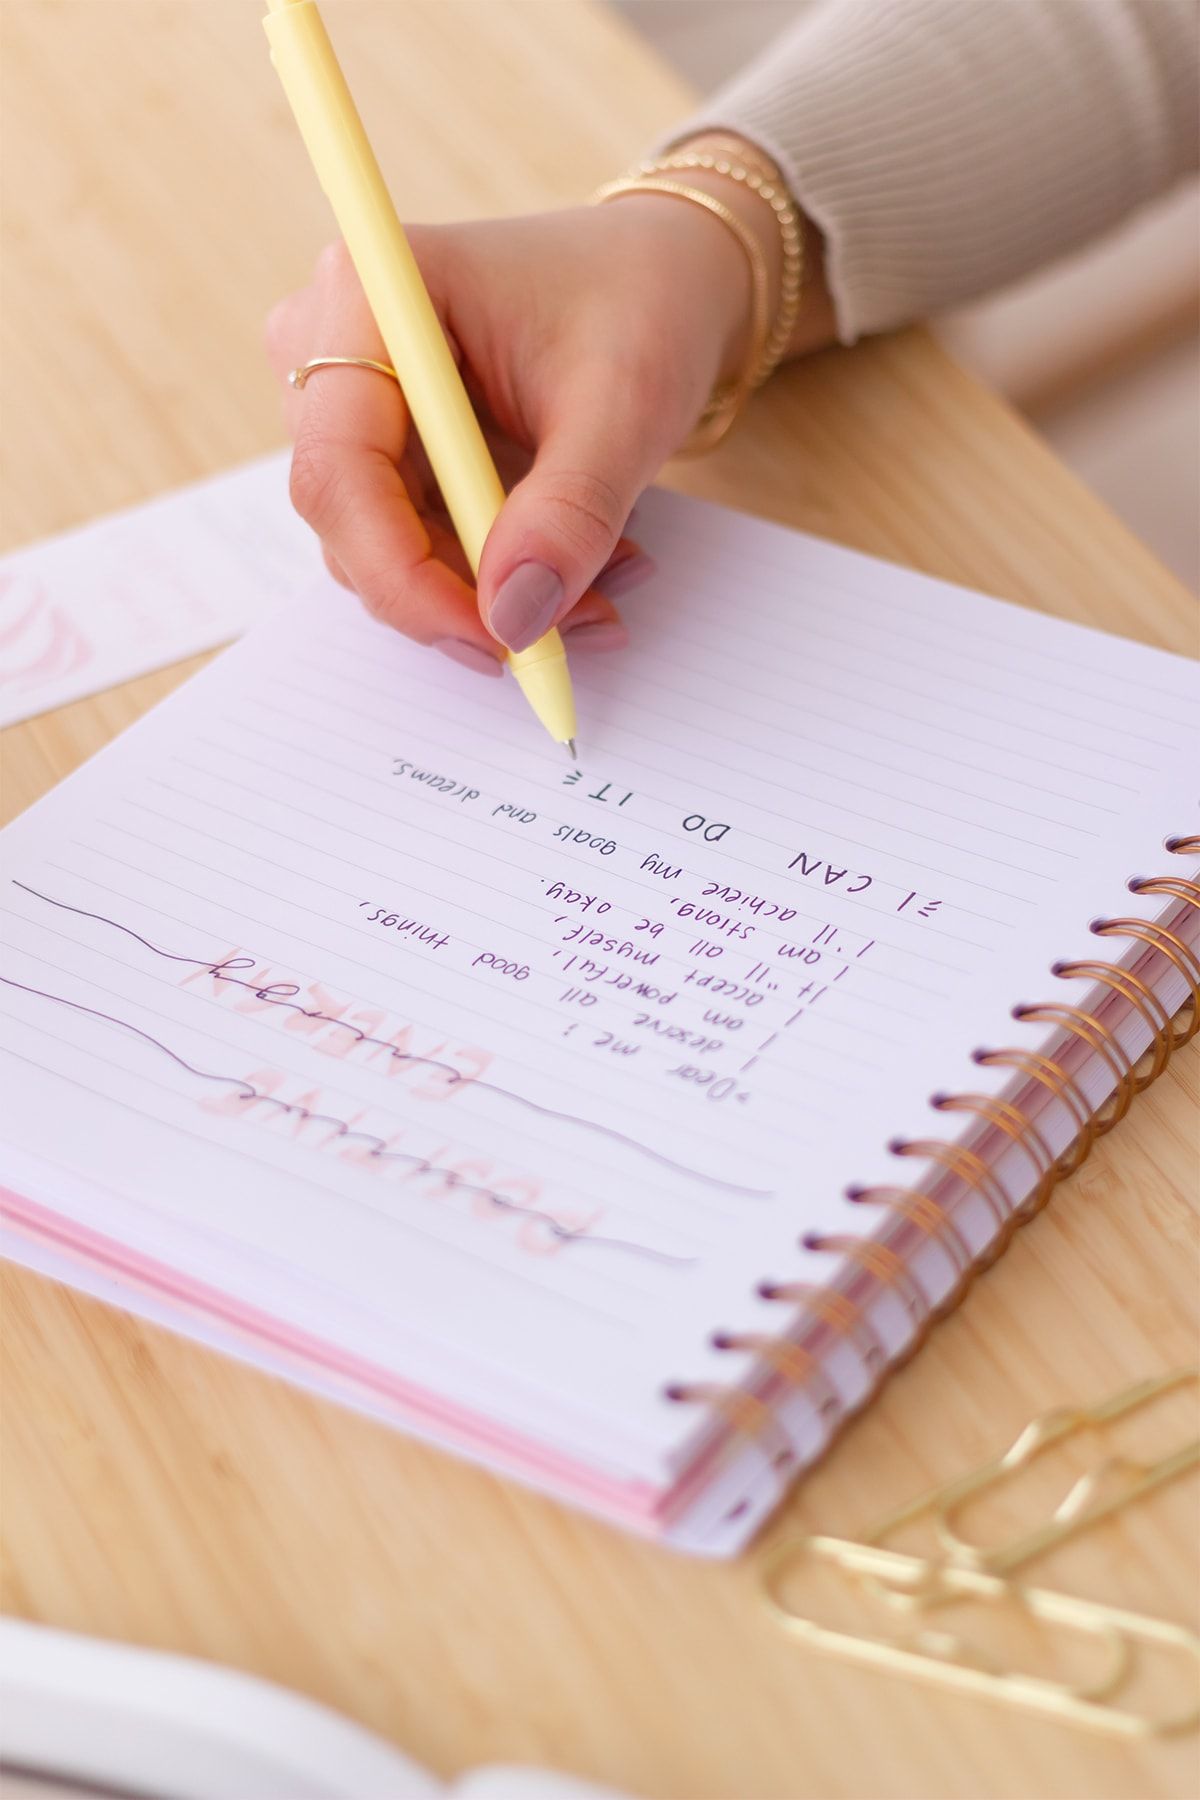 POSITIVE
positive
ENERGY
energy
Dear me :
I deserve all good things,
I am powerful,
I accept myself,
It'll all be okay.
I am strong,
I'll achieve my goals and dreams,
I CAN DO IT